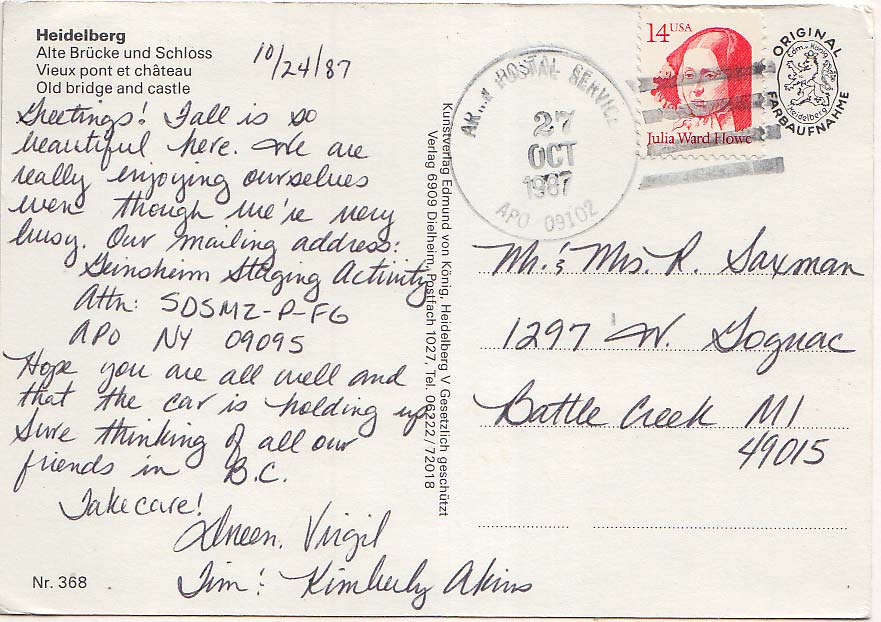 Heidelberg
Alte Brücke und Schloss
Vieux pont et château
Old bridge and castle
10/24/87
Greetings! Fall is so
beautiful here. We are
really enjoying ourselves
even though we're very
busy. Our mailing address:
Geinsheim Staging Activity
Attn: SDSMZ-P-FG
APO NY 09095
Hope you are all well and
that the car is holding up.
Sure thinking of all our
friends in B.C.
Take care!
Virgil
Tim & Kimberly Akins
Nr. 368
Kunstverlag Edmund von König, Heidelberg V Gesetzlich geschützt
Verlag 6909 Dielheim, Postfach 1027, Tel. 06222/72018
POSTAL SERVICE
27
OCT
1987
APO 09102
14 USA
Julia Ward Howe
ORIGINAL
Edm. König
Heidelberg
FARBAUFNAHME
Mr. & Mrs. R. Saxman
1297 W. Gognac
Battle Creek MI
49015